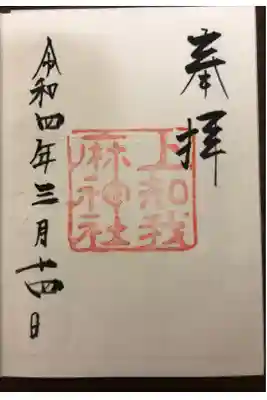 奉拝
上知我
麻神社
令和四年三月十四日